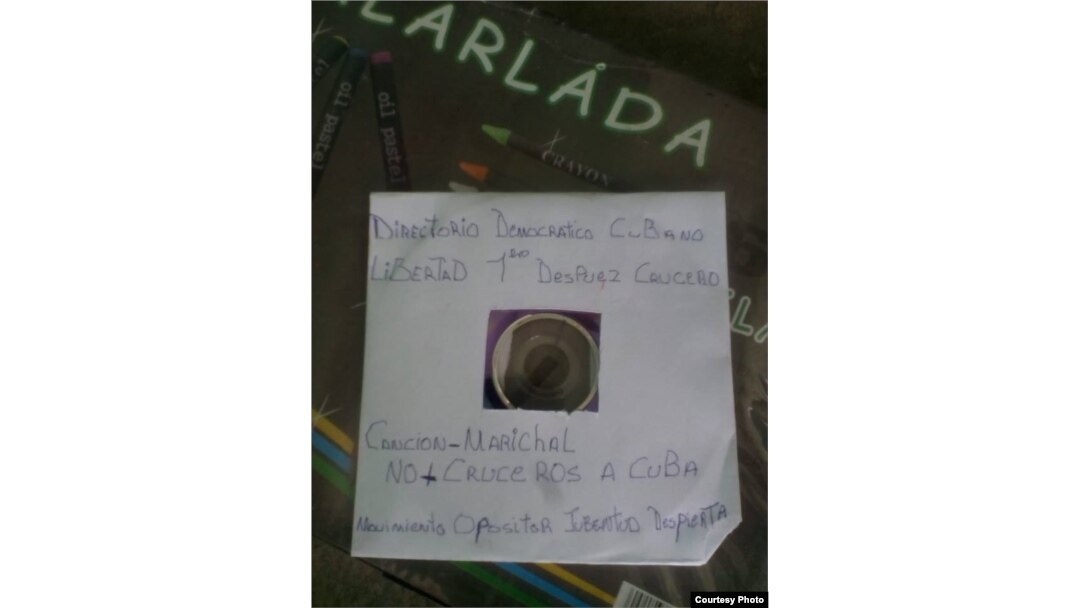 ARLÁDA
oil pastel
oil pastel
CRAYON
DIRECTORIO DEMOCRATICO CUBANO
LIBERTAD 1ero DESPUEZ CRUCERO
CANCION-MARICHAL
NO+ CRUCEROS A CUBA
MOVIMIENTO OPOSITOR JUBENTUD DESPIERTA
Courtesy Photo